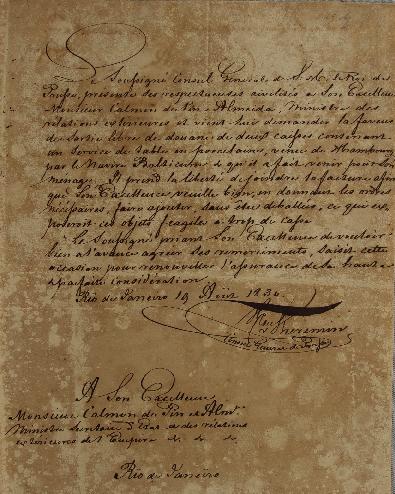 Le Soussigné Consul Général de S. M. le Roi des
présente ses respectueuses civilités à Son Excellence
Monsieur Calmon du Pin e Almeida, Ministre des
relations extérieures et vient lui demander la faveur
de sortie libre de douane de deux caisses contenant
un service de table en porcelaine, venu de Hambourg
par le Navire qu'il a fait venir pour son
ménage. Il prend la liberté de joindre la facture afin
que Son Excellence veuille bien, en donnant les ordres
nécessaires, faire ajouter, sans être déballées, ce qui ex-
poserait ces objets fragiles à trop de casse.
Le Soussigné priant Son Excellence de vouloir
bien d'avance agréer ses remerciments, saisit cette
occasion pour renouveller l'assurance de la haute
& parfaite considération.
Rio de Janeiro 19 Août 1830.
Theremin
Consul Général de
A Son Excellence
Monsieur Calmon du Pin et Almda
Ministre Secrétaire d'état des relations
extérieures de l'Empire & & &
Rio de Janeiro